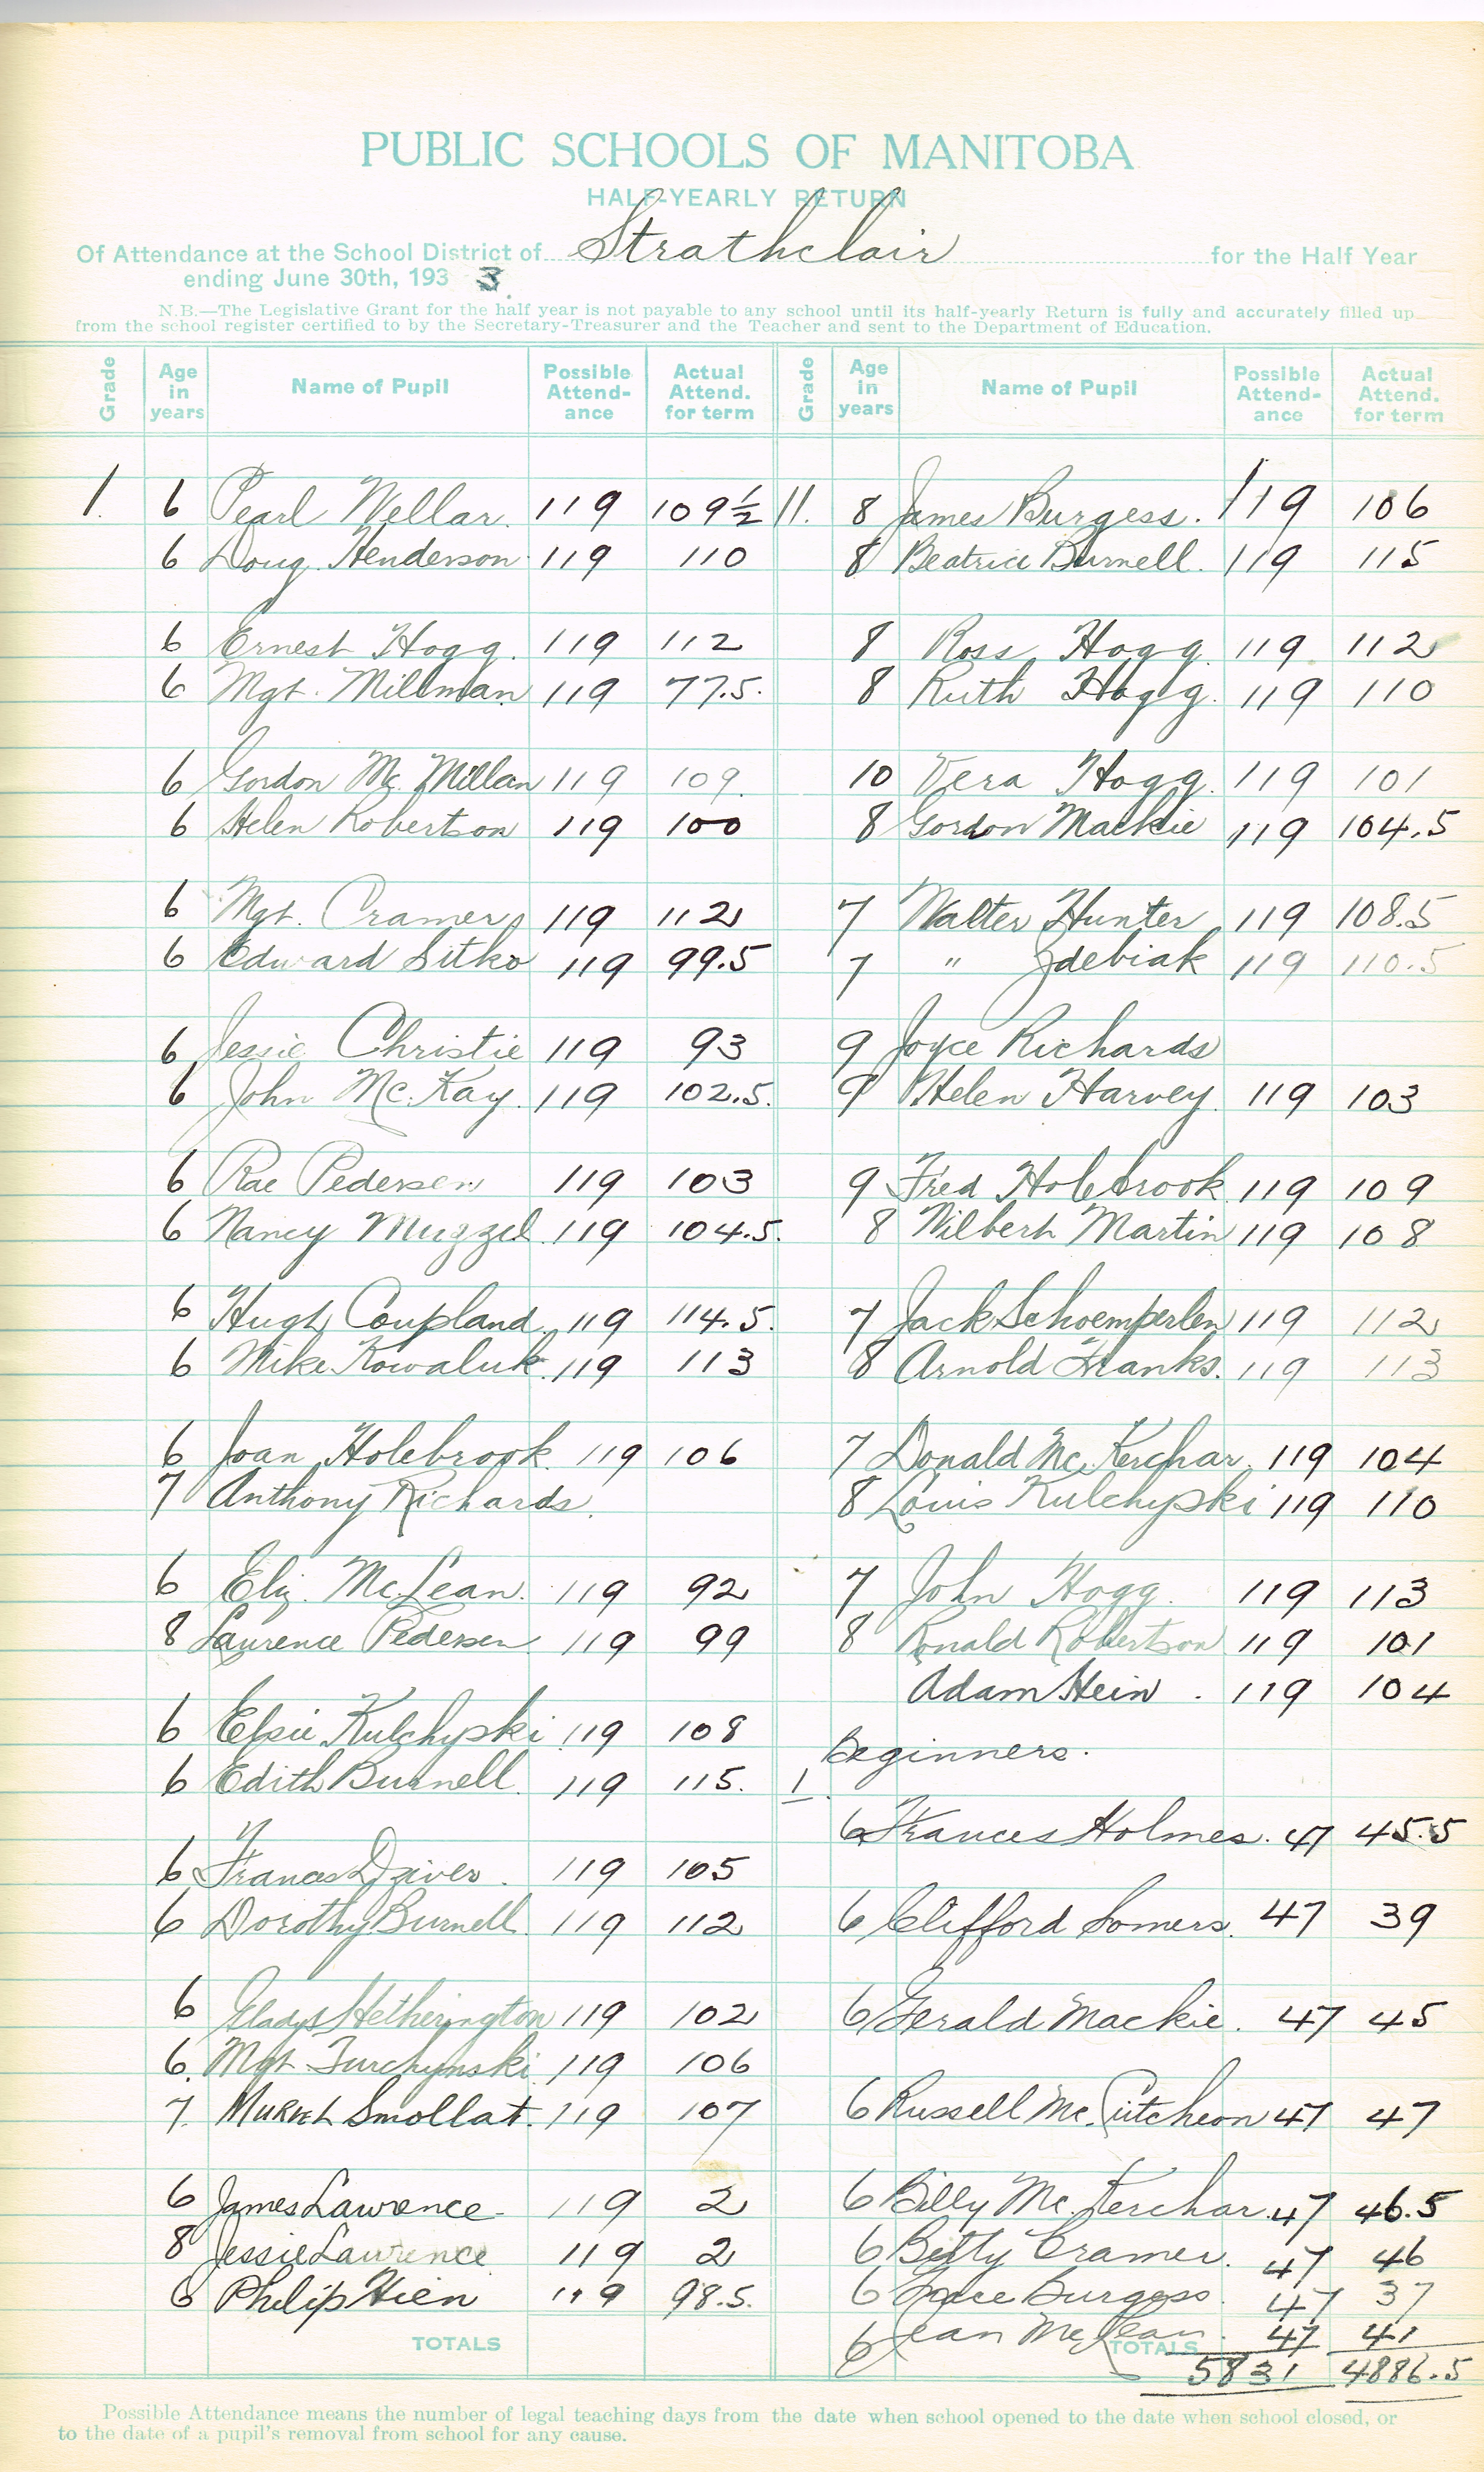 PUBLIC SCHOOLS OF MANITOBA
HALF-YEARLY RETURN
Of Attendance at the School District of Strathclair for the Half Year
ending June 30th, 193 3.
N.B.—The Legislative Grant for the half year is not payable to any school until its half-yearly Return is fully and accurately filled up
from the school register certified to by the Secretary-Treasurer and the Teacher and sent to the Department of Education.
Grade Age in years Name of Pupil Possible Attend-ance Actual Attend. for term
1. 6 Pearl Wellar. 119 109½
6 Doug. Henderson 119 110
6 Ernest Hogg. 119 112
6 Mgt. Millman 119 77.5.
6 Gordon Mc Millan 119 109.
6 Helen Robertson 119 100
6 Mgt. Cramer 119 112
6 Edward Sitko 119 99.5
6 Jessie Christie 119 93
6 John Mc.Kay. 119 102.5.
6 Rae Pedersen 119 103
6 Nancy Muzzel 119 104.5.
6 Hugh Coupland. 119 114.5.
6 Mike Kowaluk. 119 113
6 Joan Holebrook. 119 106
7 Anthony Richards.
6 Eliz. McLean. 119 92
8 Laurence Pedersen 119 99
6 Elsie Kulchyski 119 108
6 Edith Burnell. 119 115.
6 Frances Dziver. 119 105
6 Dorothy Burnell. 119 112
6 Gladys Hetherington 119 102
6. Mgt. Turchynski. 119 106
7. Smollat. 119 107
6 James Lawrence 119 2
8 Jessie Lawrence 119 2
6 Philip Hien 119 98.5.
TOTALS
Grade Age in years Name of Pupil Possible Attend-ance Actual Attend. for term
11. 8 James Burgess. 119 106
8 Beatrice Burnell. 119 115
8 Ross Hogg. 119 112
8 Ruth Hogg. 119 110
10 Vera Hogg. 119 101
8 Gordon Mackie 119 104.5
7 Walter Hunter 119 108.5
7 " Zdebiak 119 110.5
9 Joyce Richards
9 Helen Harvey. 119 103
9 Fred Holebrook 119 109
8 Wilbert Martin 119 108
7 Jack Schoemperlen 119 112
8 Arnold Hanks. 119 113
7 Donald Mc.Kerchar. 119 104
8 Louis Kulchyski 119 110
7 John Hogg. 119 113
8 Ronald Robertson 119 101
Adam Hein. 119 104
Beginners.
1.
6 Frances Holmes. 47 45.5
6 Clifford Somers. 47 39
6 Gerald Mackie. 47 45
6 Russell Mc.Cutcheon 47 47
6 Billy Mc.Kerchar. 47 46.5
6 Betty Cramer. 47 46
6 Grace Burgess. 47 37
6 Jean McLean. 47 41
TOTALS 5831 4886.5
Possible Attendance means the number of legal teaching days from the date when school opened to the date when school closed, or
to the date of a pupil's removal from school for any cause.